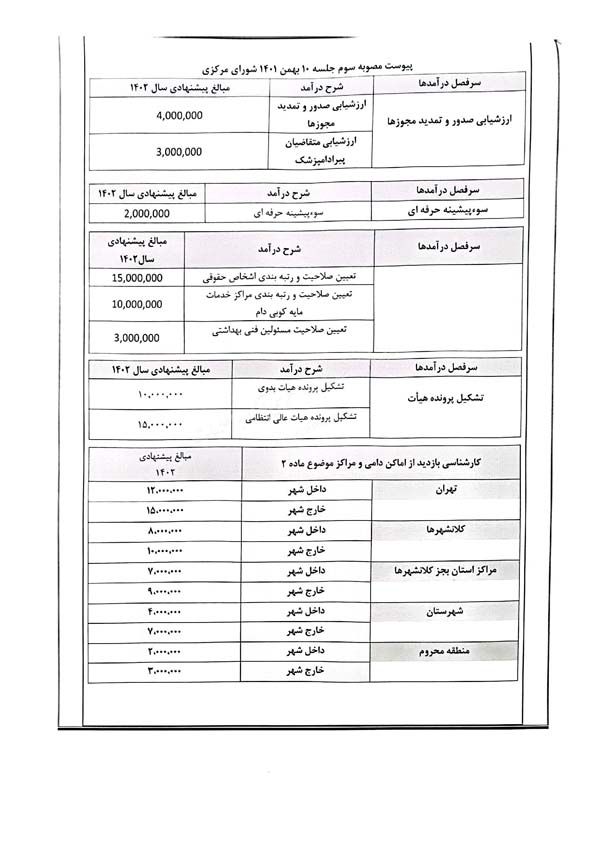 پیوست مصوبه سوم جلسه ۱۰ بهمن ۱۴۰۱ شورای مرکزی
سرفصل درآمدها شرح درآمد مبالغ پیشنهادی سال ۱۴۰۲
ارزشیابی صدور و تمدید مجوزها ارزشیابی صدور و تمدید مجوزها 4,000,000
ارزشیابی متقاضیان پیرادامپزشک 3,000,000
سرفصل درآمدها شرح درآمد مبالغ پیشنهادی سال ۱۴۰۲
سوءپیشینه حرفه ای سوءپیشینه حرفه ای 2,000,000
سرفصل درآمدها شرح درآمد مبالغ پیشنهادی سال ۱۴۰۲
تعیین صلاحیت و رتبه بندی اشخاص حقوقی 15,000,000
تعیین صلاحیت و رتبه بندی مراکز خدمات مایه کوبی دام 10,000,000
تعیین صلاحیت مسئولین فنی بهداشتی 3,000,000
سرفصل درآمدها شرح درآمد مبالغ پیشنهادی سال ۱۴۰۲
تشکیل پرونده هیأت تشکیل پرونده هیات بدوی ۱۰,۰۰۰,۰۰۰
تشکیل پرونده هیات عالی انتظامی ۱۵,۰۰۰,۰۰۰
کارشناسی بازدید از اماکن دامی و مراکز موضوع ماده ۲ مبالغ پیشنهادی ۱۴۰۲
تهران داخل شهر ۱۲,۰۰۰,۰۰۰
خارج شهر ۱۵,۰۰۰,۰۰۰
کلانشهرها داخل شهر ۸,۰۰۰,۰۰۰
خارج شهر ۱۰,۰۰۰,۰۰۰
مراکز استان بجز کلانشهرها داخل شهر ۷,۰۰۰,۰۰۰
خارج شهر ۹,۰۰۰,۰۰۰
شهرستان داخل شهر ۴,۰۰۰,۰۰۰
خارج شهر ۷,۰۰۰,۰۰۰
منطقه محروم داخل شهر ۲,۰۰۰,۰۰۰
خارج شهر ۳,۰۰۰,۰۰۰